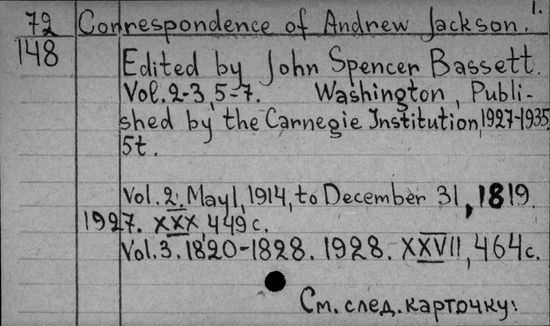 1.
72 Correspondence of Andrew Jackson.
148 Edited by John Spencer Bassett.
Vol. 2-3, 5-7. Washington, Publi-
shed by the Carnegie Institution, 1927-1935
5t.
Vol. 2. May 1, 1914, to December 31, 1819.
1927. XXX, 449 c.
Vol. 3. 1820-1828. 1928. XXVII, 464 c.
См. след. карточку: